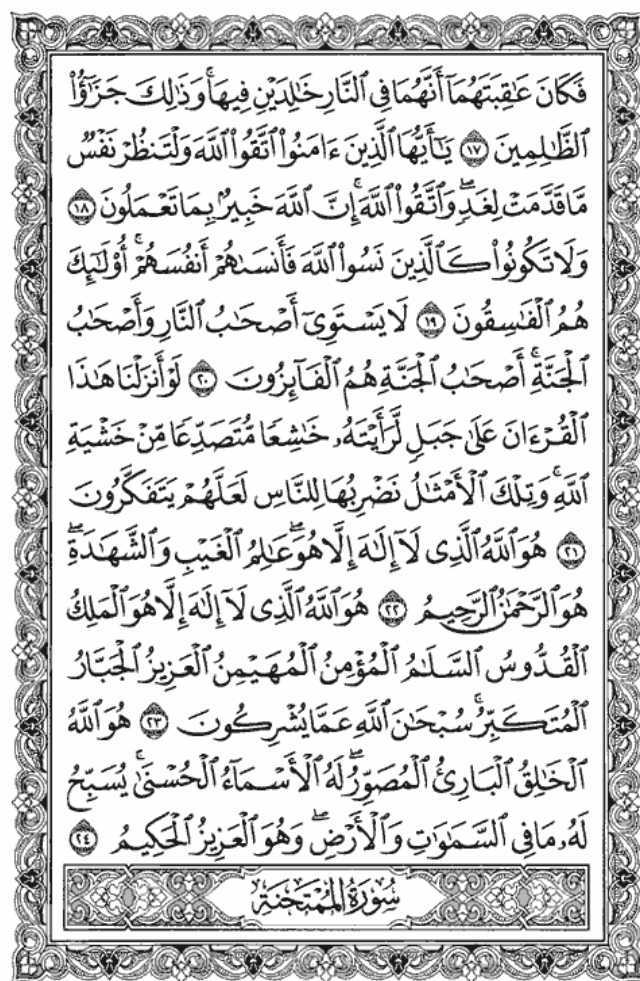 فَكَانَ عَٰقِبَتَهُمَآ أَنَّهُمَا فِى ٱلنَّارِ خَٰلِدَيْنِ فِيهَا ۚ وَذَٰلِكَ جَزَٰٓؤُا۟
ٱلظَّٰلِمِينَ ١٧ يَٰٓأَيُّهَا ٱلَّذِينَ ءَامَنُوا۟ ٱتَّقُوا۟ ٱللَّهَ وَلْتَنظُرْ نَفْسٌ
مَّا قَدَّمَتْ لِغَدٍ ۖ وَٱتَّقُوا۟ ٱللَّهَ ۚ إِنَّ ٱللَّهَ خَبِيرٌۢ بِمَا تَعْمَلُونَ ١٨
وَلَا تَكُونُوا۟ كَٱلَّذِينَ نَسُوا۟ ٱللَّهَ فَأَنسَىٰهُمْ أَنفُسَهُمْ ۚ أُو۟لَٰٓئِكَ
هُمُ ٱلْفَٰسِقُونَ ١٩ لَا يَسْتَوِىٓ أَصْحَٰبُ ٱلنَّارِ وَأَصْحَٰبُ
ٱلْجَنَّةِ ۚ أَصْحَٰبُ ٱلْجَنَّةِ هُمُ ٱلْفَآئِزُونَ ٢٠ لَوْ أَنزَلْنَا هَٰذَا
ٱلْقُرْءَانَ عَلَىٰ جَبَلٍ لَّرَأَيْتَهُۥ خَٰشِعًا مُّتَصَدِّعًا مِّنْ خَشْيَةِ
ٱللَّهِ ۚ وَتِلْكَ ٱلْأَمْثَٰلُ نَضْرِبُهَا لِلنَّاسِ لَعَلَّهُمْ يَتَفَكَّرُونَ
٢١ هُوَ ٱللَّهُ ٱلَّذِى لَآ إِلَٰهَ إِلَّا هُوَ ۖ عَٰلِمُ ٱلْغَيْبِ وَٱلشَّهَٰدَةِ ۖ
هُوَ ٱلرَّحْمَٰنُ ٱلرَّحِيمُ ٢٢ هُوَ ٱللَّهُ ٱلَّذِى لَآ إِلَٰهَ إِلَّا هُوَ ٱلْمَلِكُ
ٱلْقُدُّوسُ ٱلسَّلَٰمُ ٱلْمُؤْمِنُ ٱلْمُهَيْمِنُ ٱلْعَزِيزُ ٱلْجَبَّارُ
ٱلْمُتَكَبِّرُ ۚ سُبْحَٰنَ ٱللَّهِ عَمَّا يُشْرِكُونَ ٢٣ هُوَ ٱللَّهُ
ٱلْخَٰلِقُ ٱلْبَارِئُ ٱلْمُصَوِّرُ ۖ لَهُ ٱلْأَسْمَآءُ ٱلْحُسْنَىٰ ۚ يُسَبِّحُ
لَهُۥ مَا فِى ٱلسَّمَٰوَٰتِ وَٱلْأَرْضِ ۖ وَهُوَ ٱلْعَزِيزُ ٱلْحَكِيمُ ٢٤
سُورَةُ ٱلْمُمْتَحَنَةِ